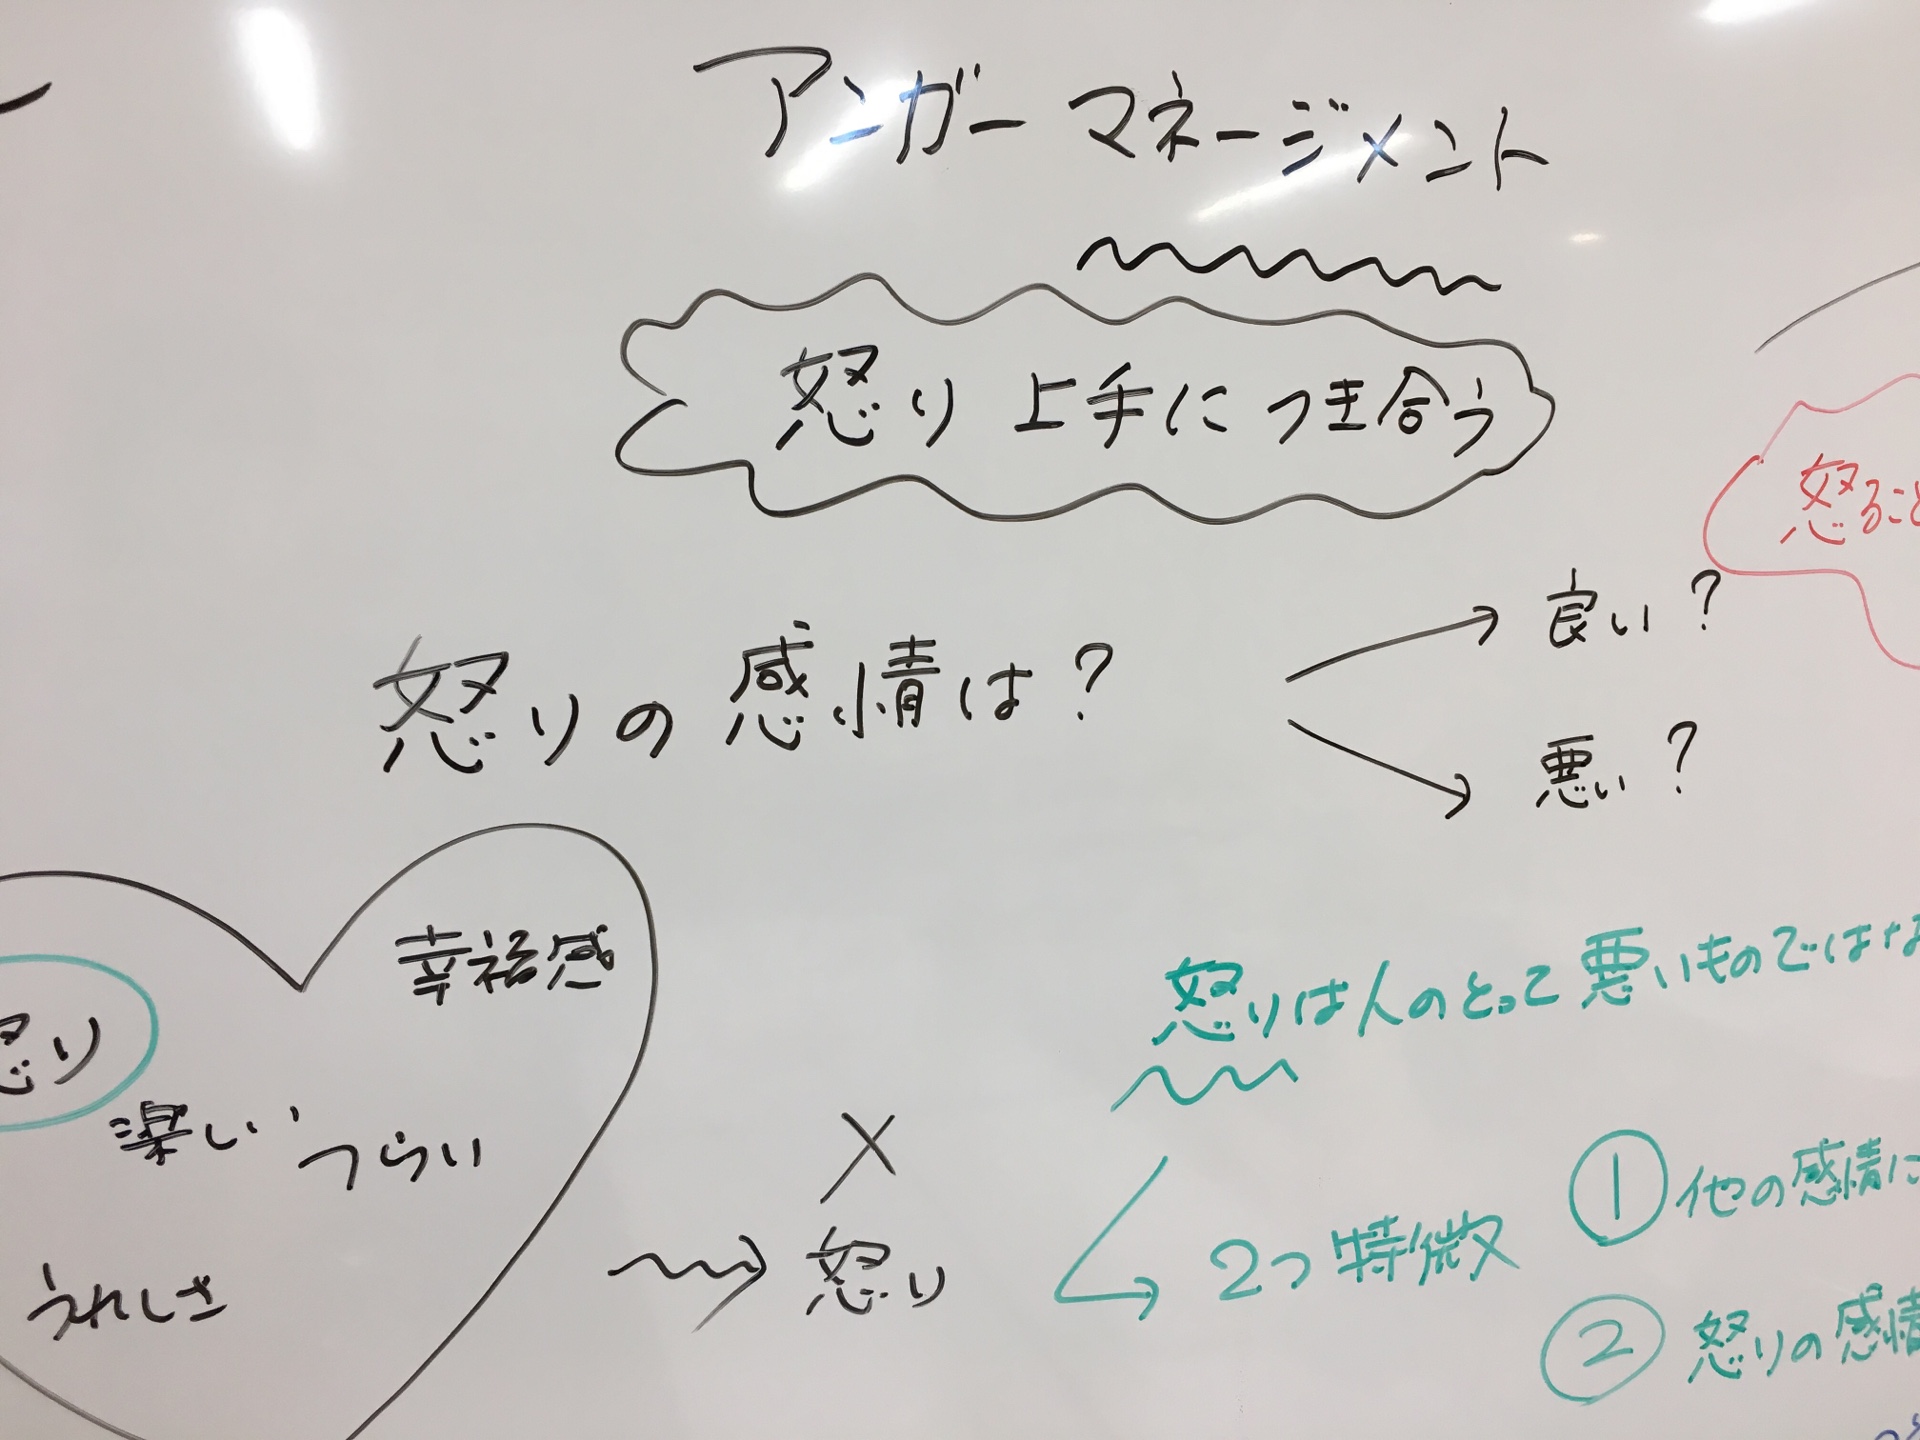 アンガーマネージメント
怒り 上手に つき合う
怒ること
怒りの感情は?
良い?
悪い?
幸福感
怒り
楽しい
つらい
うれしさ
×
怒り
怒りは人のとって悪いものではな
2つ特徴
① 他の感情に
② 怒りの感情